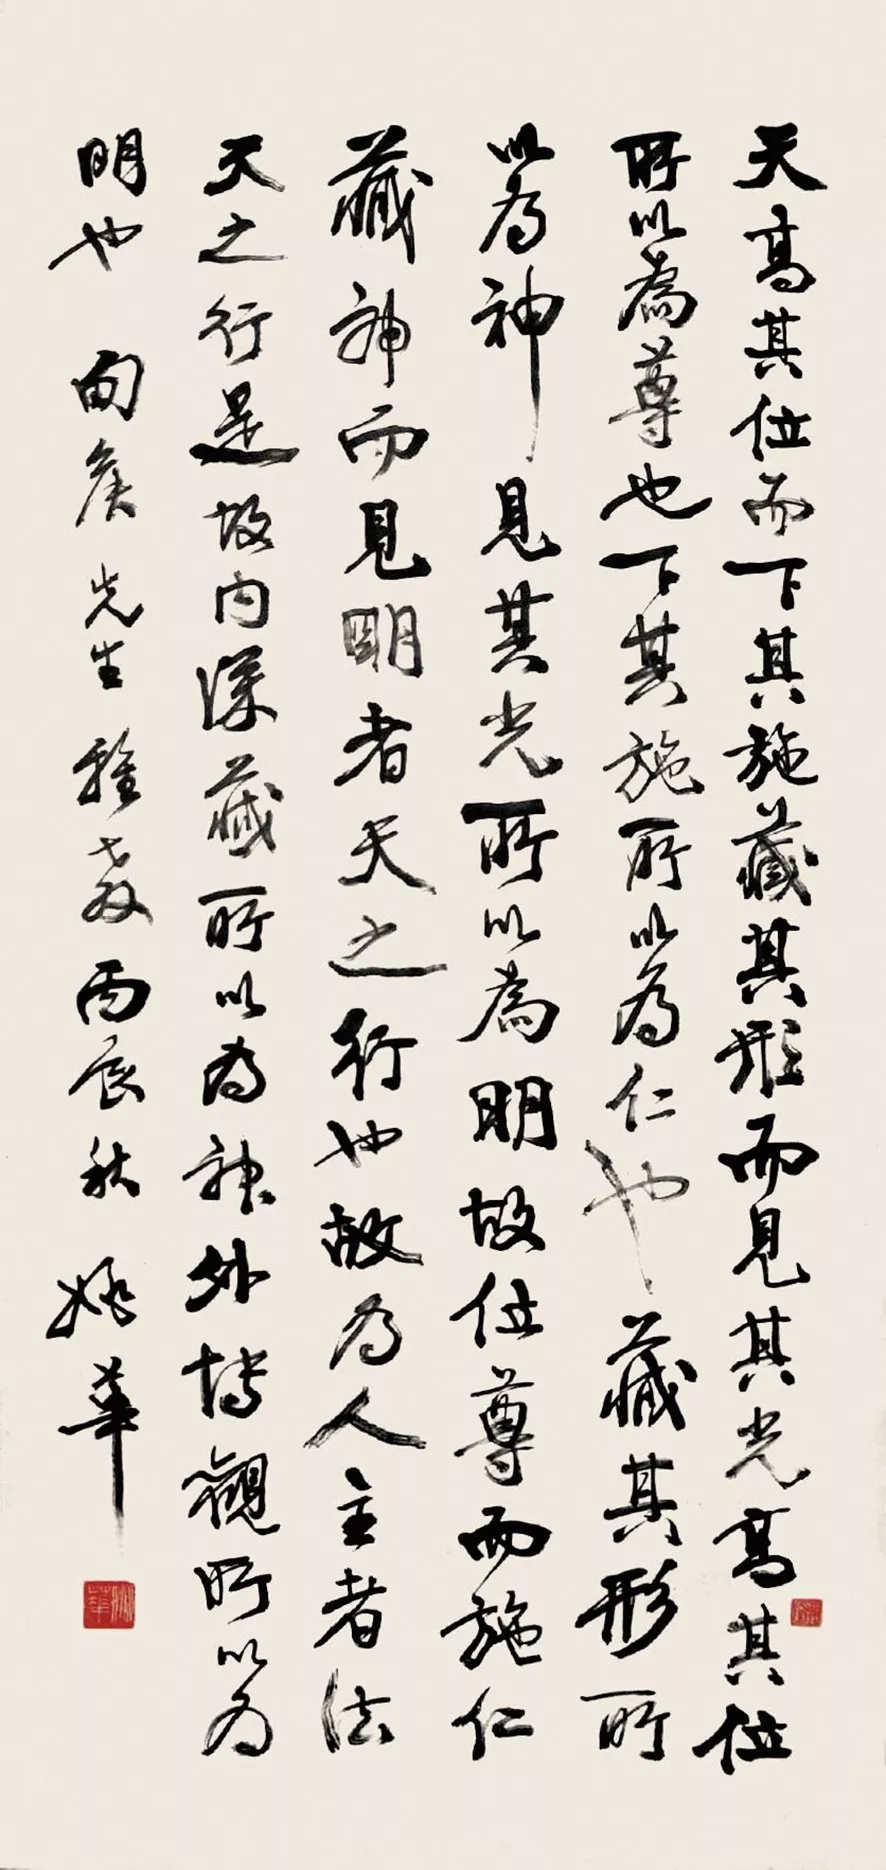 天高其位而下其施藏其形而見其光高其位
所以為尊也下其施所以為仁也藏其形所
以為神見其光所以為明故位尊而施仁
藏神而見明者天之行也故為人主者法
天之行是故內深藏所以為神外博觀所以為
明也 甸侯先生雅教丙辰秋 姚華